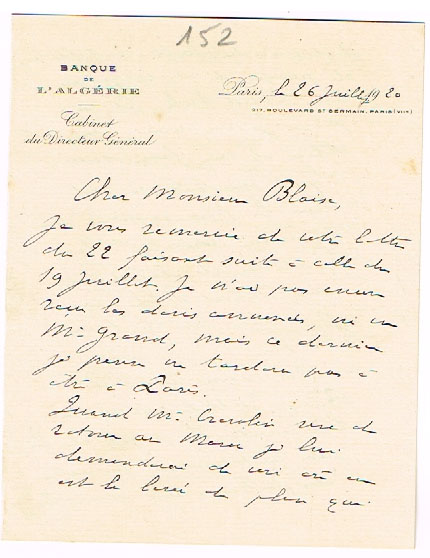 152
BANQUE
DE
L'ALGÉRIE
Cabinet
du Directeur Général
Paris, le 26 Juillet 1920
217, BOULEVARD ST GERMAIN, PARIS (VIIe)
Cher Monsieur Blaise,
Je vous remercie de votre lettre
du 22 faisant suite à celle du
19 Juillet. Je n'ai pas encore
reçu les devis annoncés, ni vu
Mr Grand, mais ce dernier
je pense ne tardera pas à
être à Paris.
Quand Mr sera de
retour au Maroc je lui
demanderai de voir où en
est le levé du plan que